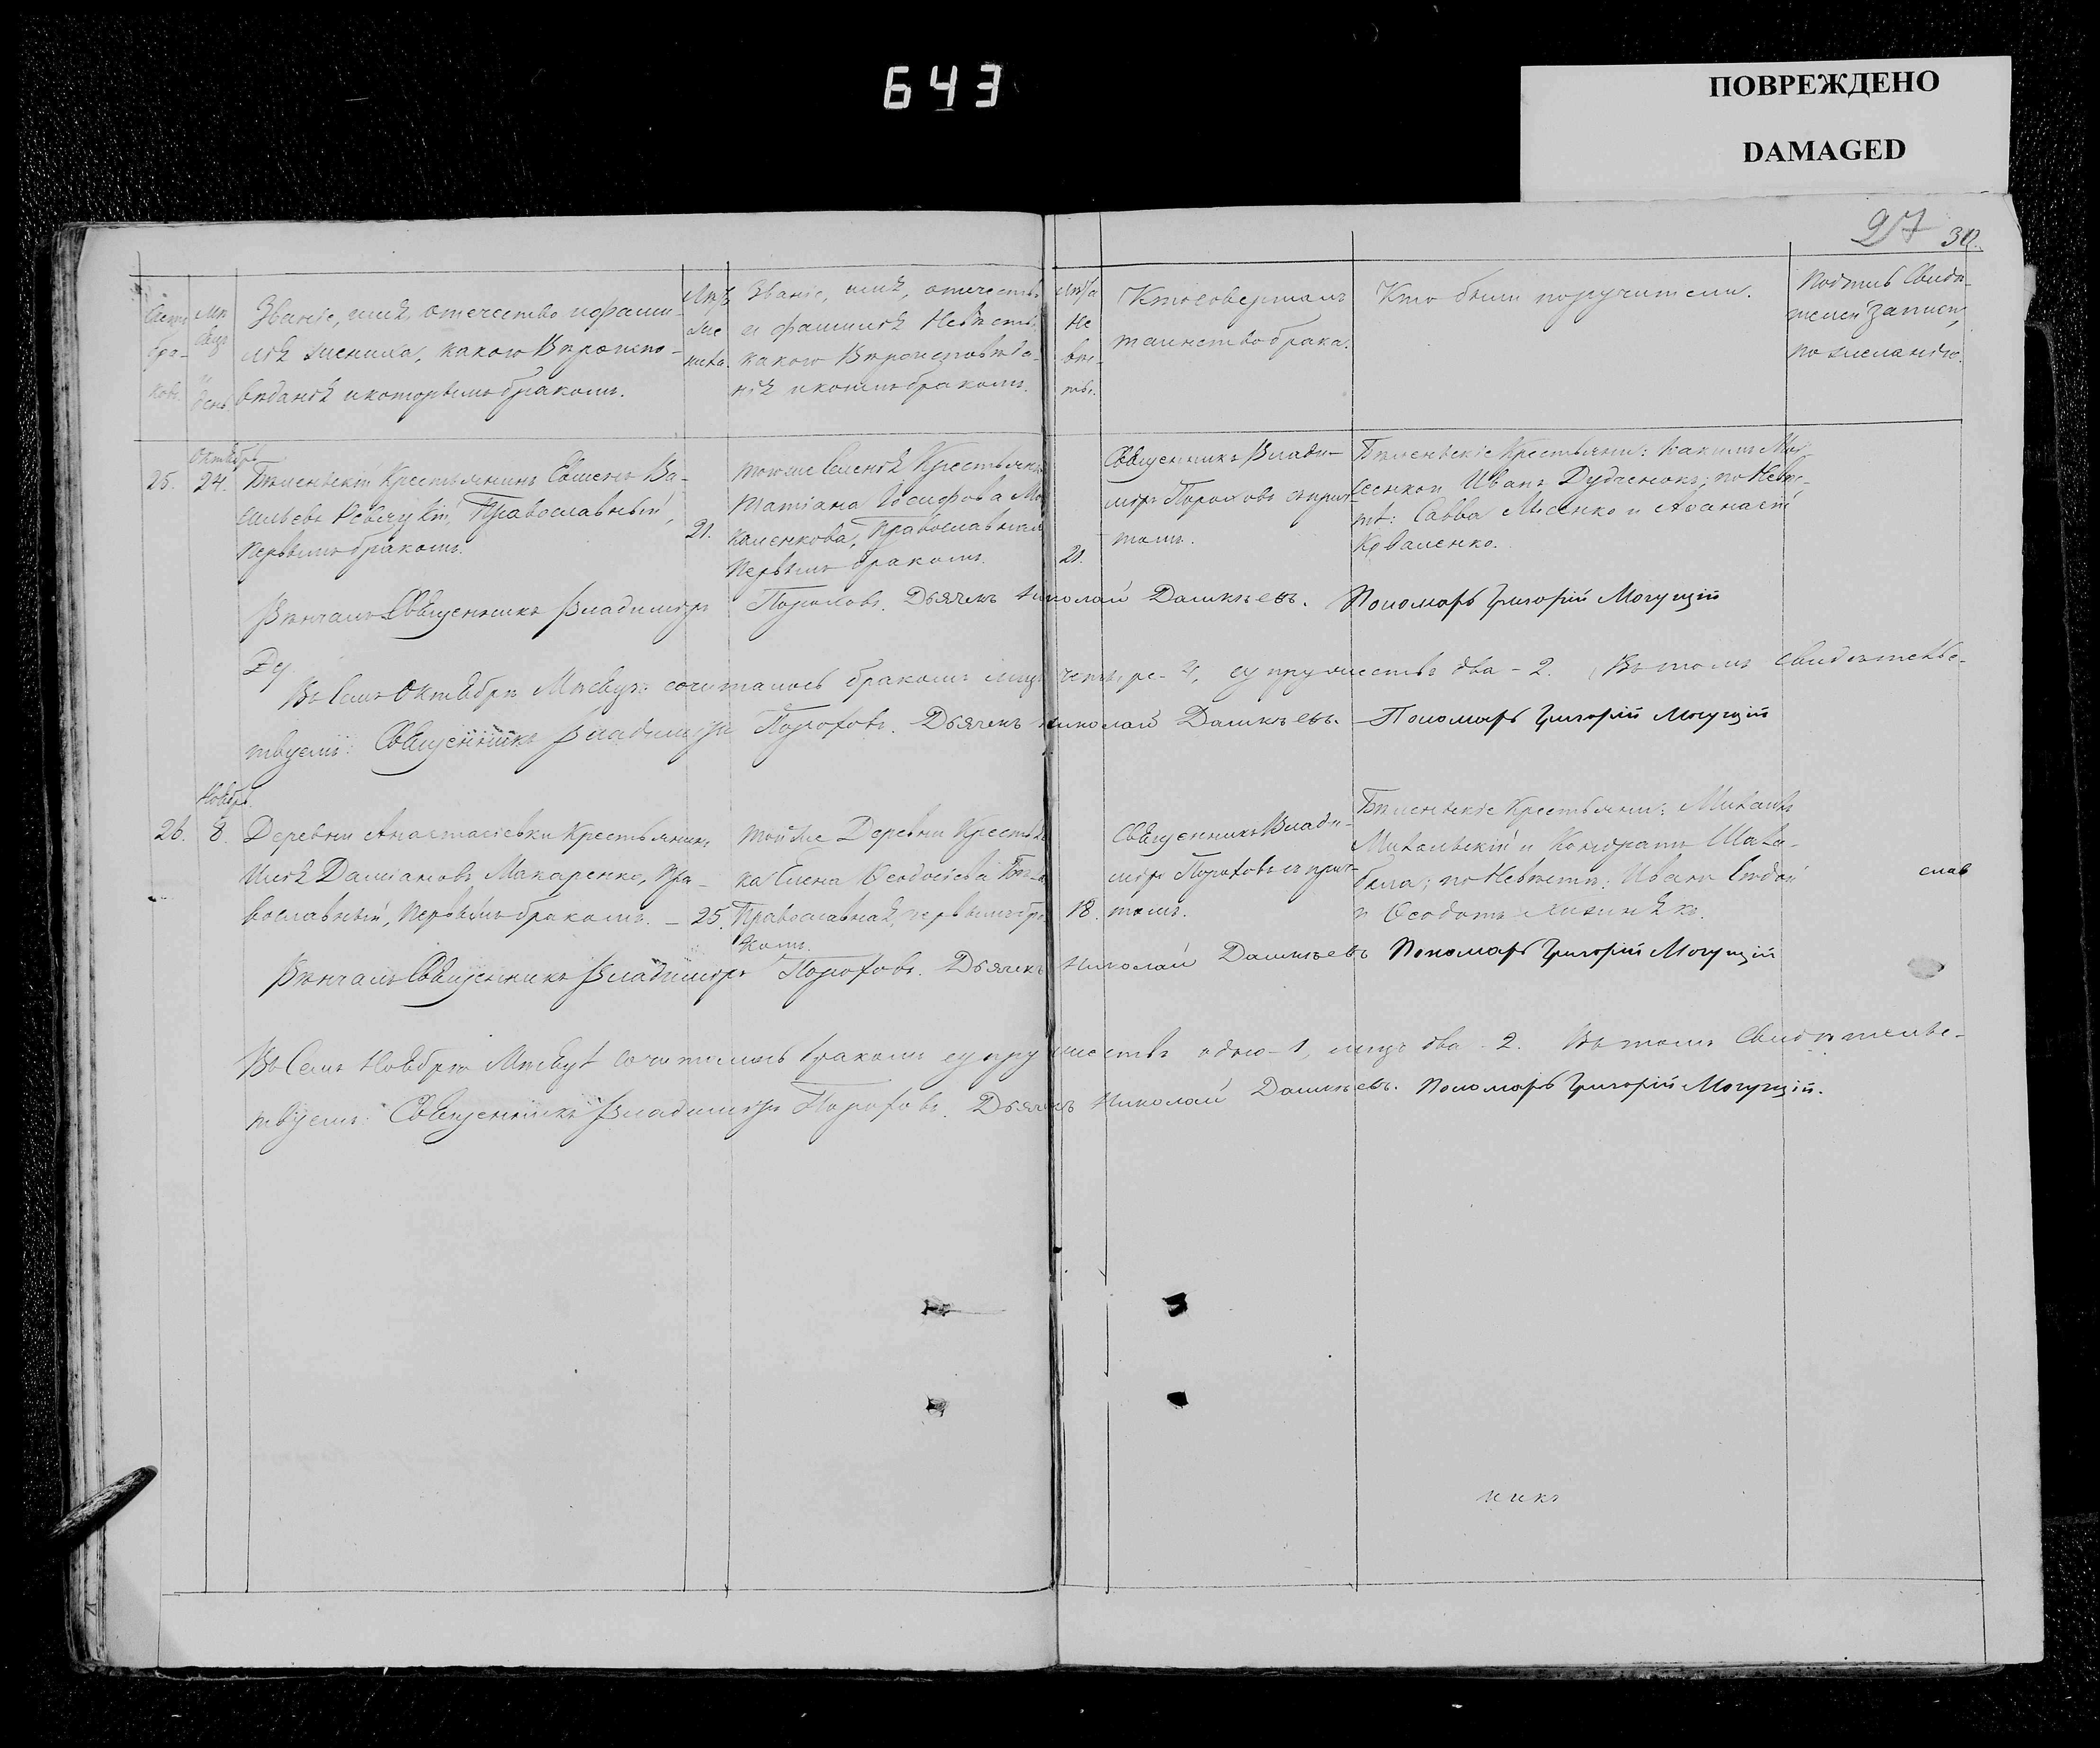 643
ПОВРЕЖДЕНО
DAMAGED
27 30.
Счетъ бра- ковъ.
Мѣ сяцъ и день
Званіе, имя, отечество и фами-
лія жениха, какого Вѣроиспо-
вѣданія и которымъ бракомъ.
Лѣта же ниха.
Званіе, имя, отечество
и фамилія Невѣсты,
какого Вѣроисповѣда-
нія и коимъ бракомъ.
Лѣта Не вѣс- ты.
Кто совершалъ
таинство брака.
Кто были поручители.
Подпись Свидѣ-
телей записи,
по желанію.
Октябрь
25. 24.
Крестьянинъ Семенъ Ва-
сильевъ Православный,
первымъ бракомъ.
21.
Тогоже Селенія Крестьянка
Татіана Іосифова
Православная
первымъ бракомъ.
21.
Священникъ Влади-
міръ Пороховъ съ прич-
томъ.
Крестьяне:
Иванъ Дудченокъ; по Невѣс-
тѣ: Савва и Аѳанасій
Коваленко.
Вѣнчалъ Священникъ Владиміръ Пороховъ. Дьячекъ Николай Дашкѣевъ. Пономарь Григорій Могущій
Въ Семъ Октябрѣ Мѣсяцѣ сочиталось бракомъ лицъ четыре - 4, супружествъ два - 2. Въ томъ свидѣтельс-
твуемъ: Священникъ Владиміръ Пороховъ. Дьячекъ Николай Дашкѣевъ. Пономарь Григорій Могущій
Ноябрь.
26. 8.
Деревни Анастасіевки Крестьянинъ
Илія Даміановъ Макаренко, Пра-
вославный, первымъ бракомъ. - 25.
Той же Деревни Крестьян-
ка Елена Ѳеодосіева
Православная, первымъ бра-
комъ.
18.
Священникъ Влади-
міръ Пороховъ съ прич-
томъ.
Крестьяне: Михаилъ
и Кондратъ Шата-
по Невѣстѣ: Иванъ
и Ѳеодотъ
слав
Вѣнчалъ Священникъ Владиміръ Пороховъ. Дьячекъ Николай Дашкѣевъ Пономарь Григорій Могущій
Въ Семъ Ноябрѣ Мѣсяцѣ сочиталось бракомъ супружество одно - 1, лицъ два - 2. Въ томъ Свидѣтельс-
твуемъ: Священникъ Владиміръ Пороховъ. Дьячекъ Николай Дашкѣевъ. Пономарь Григорій Могущій.
никъ